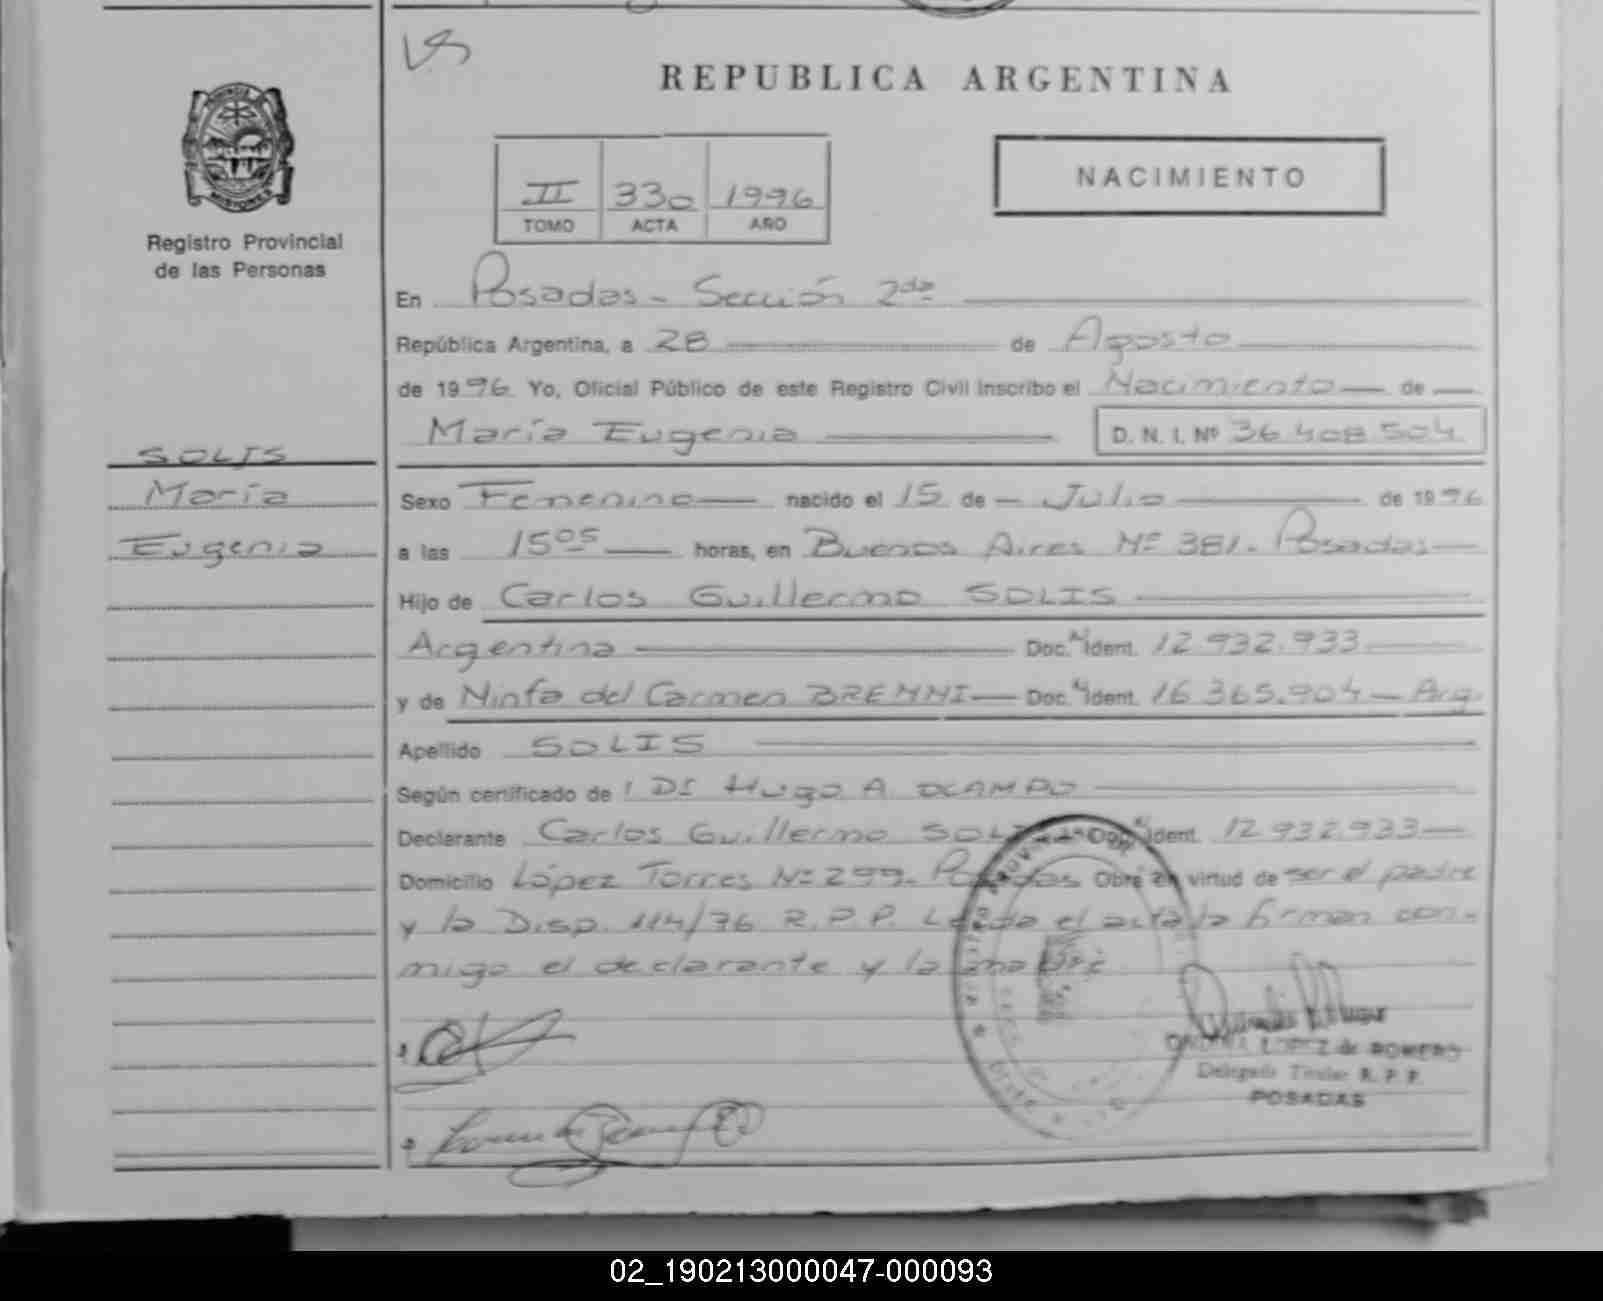 REPUBLICA ARGENTINA
PROVINCIA DE
MISIONES
Registro Provincial
de las Personas
II 330 1996
TOMO ACTA AÑO
NACIMIENTO
En Posadas - Sección 2da
República Argentina, a 28 de Agosto
de 1996 Yo, Oficial Público de este Registro Civil Inscribo el Nacimiento de
María Eugenia D. N. I. Nº 36 408 504
SOLIS
María
Eugenia
Sexo Femenino nacido el 15 de Julio de 1996
a las 15 05 horas, en Buenos Aires Nº 381. Posadas
Hijo de Carlos Guillermo SOLIS
Argentina Doc. N Ident. 12.932.933
y de Ninfa del Carmen Doc. N Ident. 16 365.904 - Arg.
Apellido SOLIS
Según certificado de Hugo A OCAMPO
Declarante Carlos Guillermo SOLIS Doc. N Ident. 12 932.933
Domicilio López Torres Nº 299. Posadas Obre en virtud de ser el padre
y la Disp. 114/76 R.P.P. Leída el acta la firman con-
migo el declarante y la madre
LOPEZ de ROMERO
Delegada Titular R. P. P.
POSADAS
02_190213000047-000093